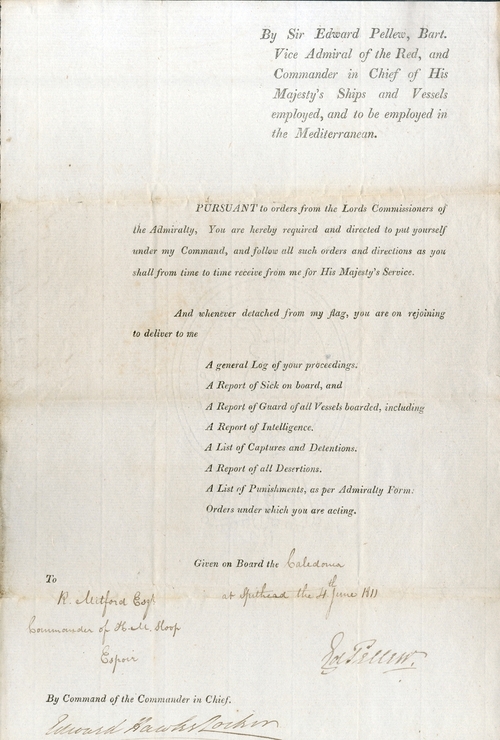 By Sir Edward Pellew, Bart.
Vice Admiral of the Red, and
Commander in Chief of His
Majesty's Ships and Vessels
employed, and to be employed in
the Mediterranean.
PURSUANT to orders from the Lords Commissioners of
the Admiralty, You are hereby required and directed to put yourself
under my Command, and follow all such orders and directions as you
shall from time to time receive from me for His Majesty's Service.
And whenever detached from my flag, you are on rejoining
to deliver to me
A general Log of your proceedings.
A Report of Sick on board, and
A Report of Guard of all Vessels boarded, including
A Report of Intelligence.
A List of Captures and Detentions.
A Report of all Desertions.
A List of Punishments, as per Admiralty Form:
Orders under which you are acting.
Given on Board the Caledonia
at Spithead the 4th June 1811
To
R. Mitford Esqr
Commander of H.M. Sloop
Espoir
Pellew.
By Command of the Commander in Chief.
Edward Hawke Locker